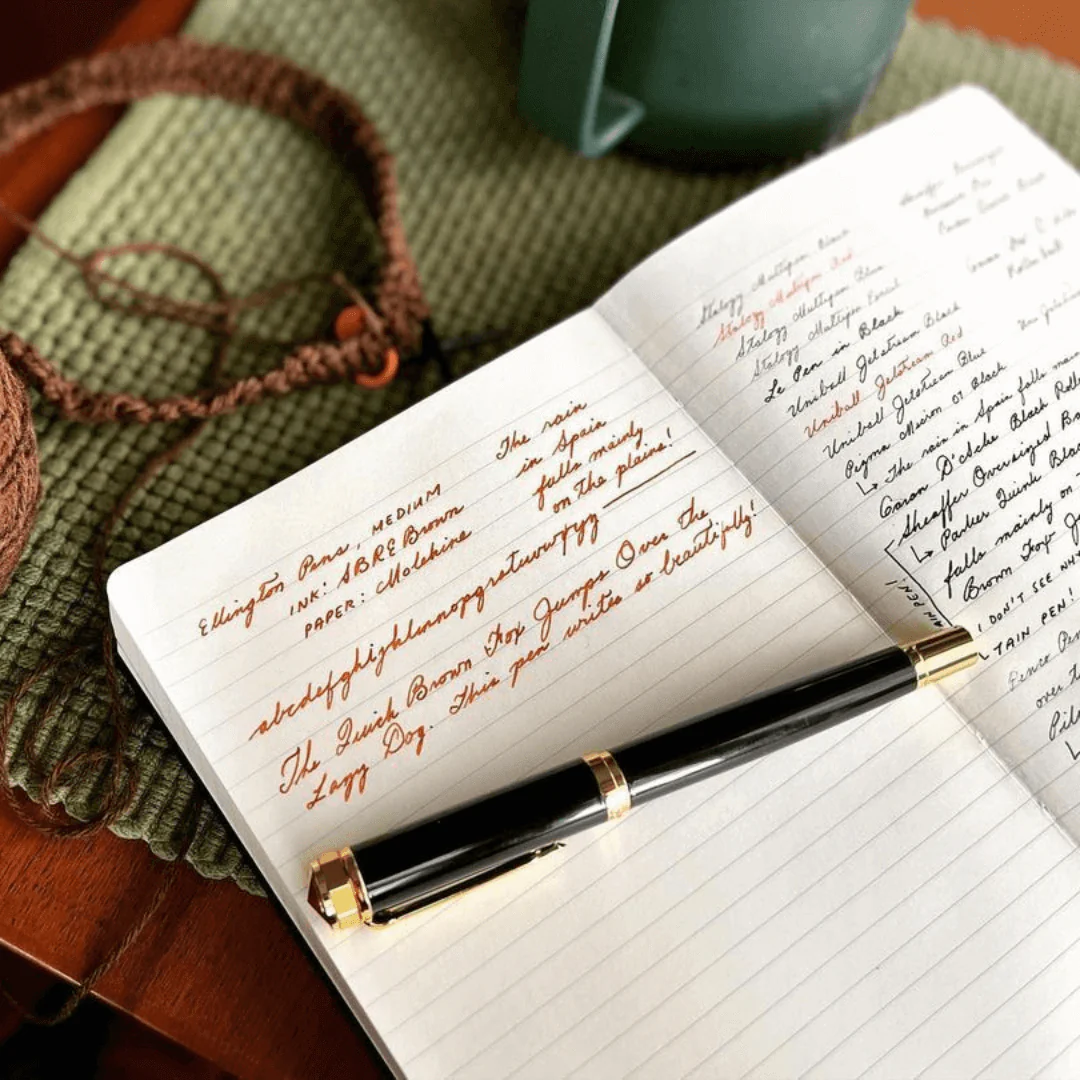 Ellington Pens, MEDIUM
INK: SBRE Brown
PAPER: Moleskine
The rain
in Spain
falls mainly
on the plains!
abcdefghijklmnopqrstuvwxyz
The Quick Brown Fox Jumps Over the
Lazy Dog. This pen writes so beautifully!
Stalogy Multipen Black
Stalogy Multipen Red
Stalogy Multipen Blue
Stalogy Multipen Pencil
Le Pen in Black
Uniball Jetstream Black
Uniball Jetstream Red
Uniball Jetstream Blue
Pigma Micron 01 Black
The rain in Spain falls
Caran D'ache Black
Sheaffer Oversized
Parker Quink
falls mainly on
Brown Fox
PEN!
I DON'T SEE
TAIN PEN!
over